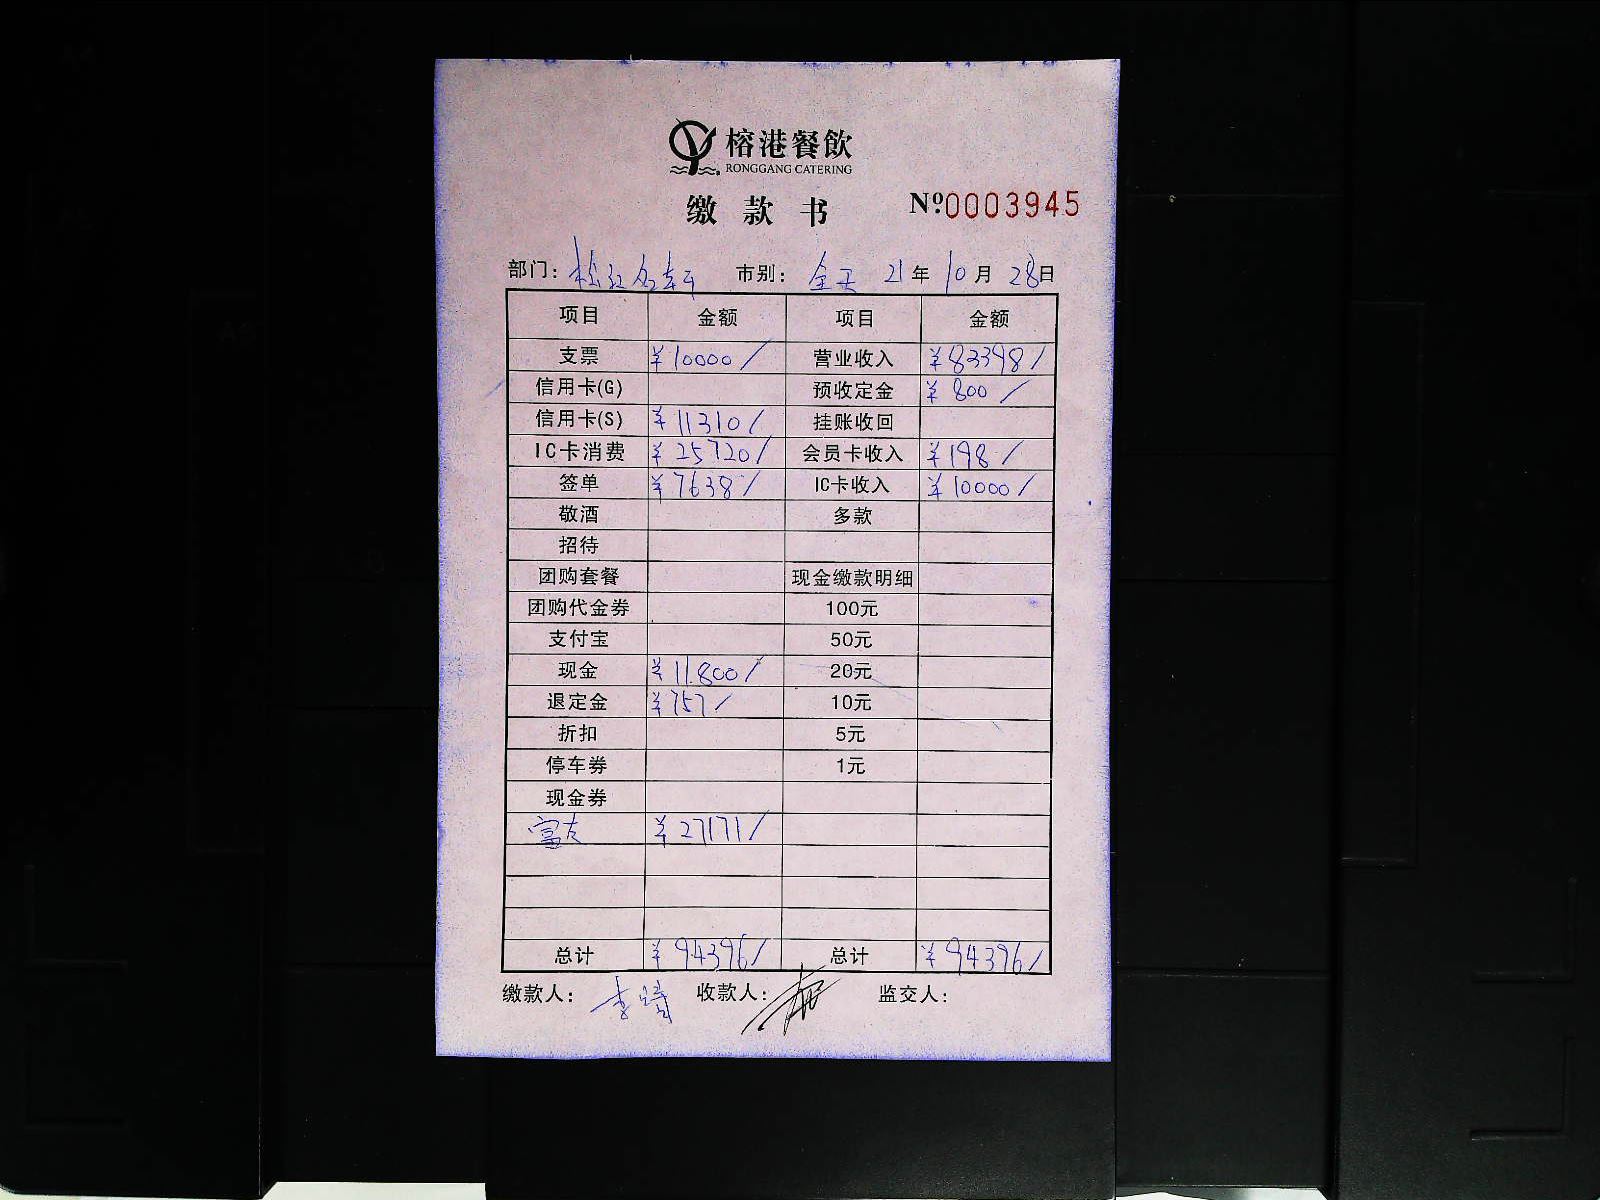 榕港餐飲
RONGGANG CATERING
缴款书 №0003945
部门: 松江名轩 市别: 全天 21年10月28日
项目 金额 项目 金额
支票 ¥10000/ 营业收入 ¥83398/
信用卡(G) 预收定金 ¥800/
信用卡(S) ¥11310/ 挂账收回
IC卡消费 ¥25720/ 会员卡收入 ¥198/
签单 ¥7638/ IC卡收入 ¥10000/
敬酒 多款
招待
团购套餐 现金缴款明细
团购代金券 100元
支付宝 50元
现金 ¥11.800/ 20元
退定金 ¥757/ 10元
折扣 5元
停车券 1元
现金券
富友 ¥27171/
总计 ¥94396/ 总计 ¥94396/
缴款人: 李 收款人: 监交人: